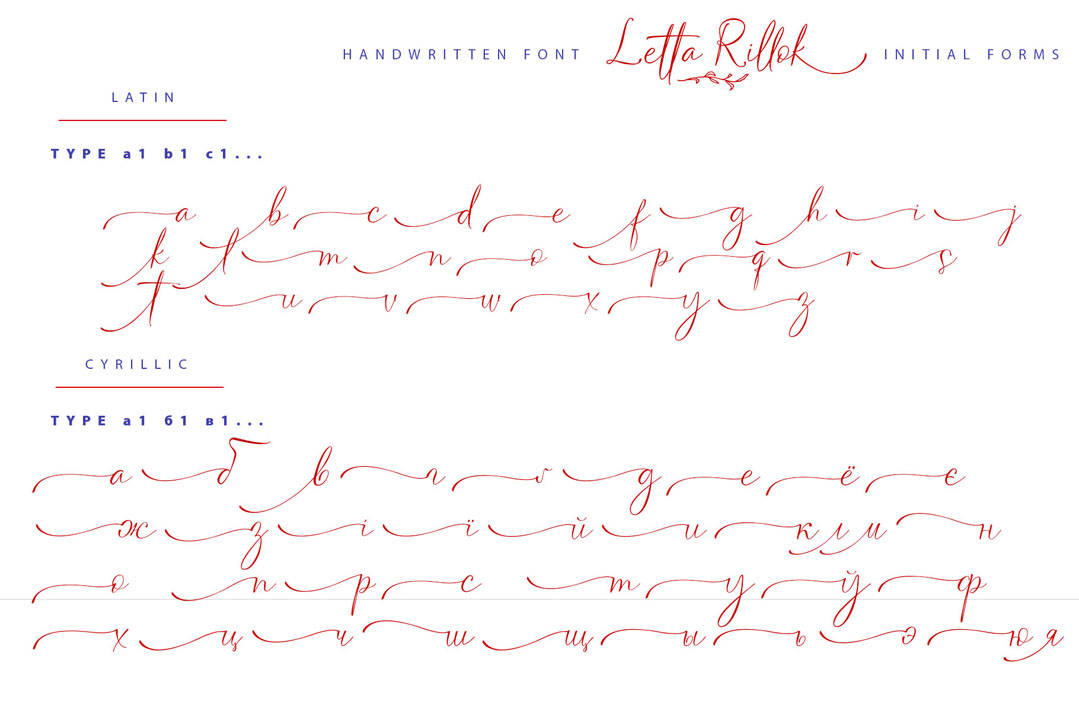 HANDWRITTEN FONT Letta Rillok INITIAL FORMS
LATIN
TYPE a1 b1 c1...
a b c d e f g h i j
k l m n o p q r s
t u v w x y z
CYRILLIC
TYPE а1 б1 в1...
а б в г ґ д е ё є
ж з і ї й и к л м н
о п р с т у ў ф
х ц ч ш щ ы ь э ю я